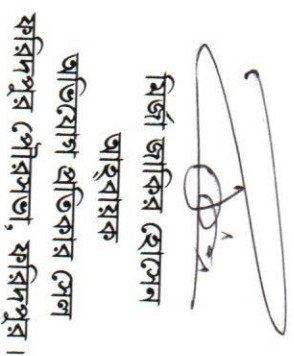 মির্জা জাকির হোসেন
আহবায়ক
অভিযোগ প্রতিকার সেল
ফরিদপুর পৌরসভা, ফরিদপুর।